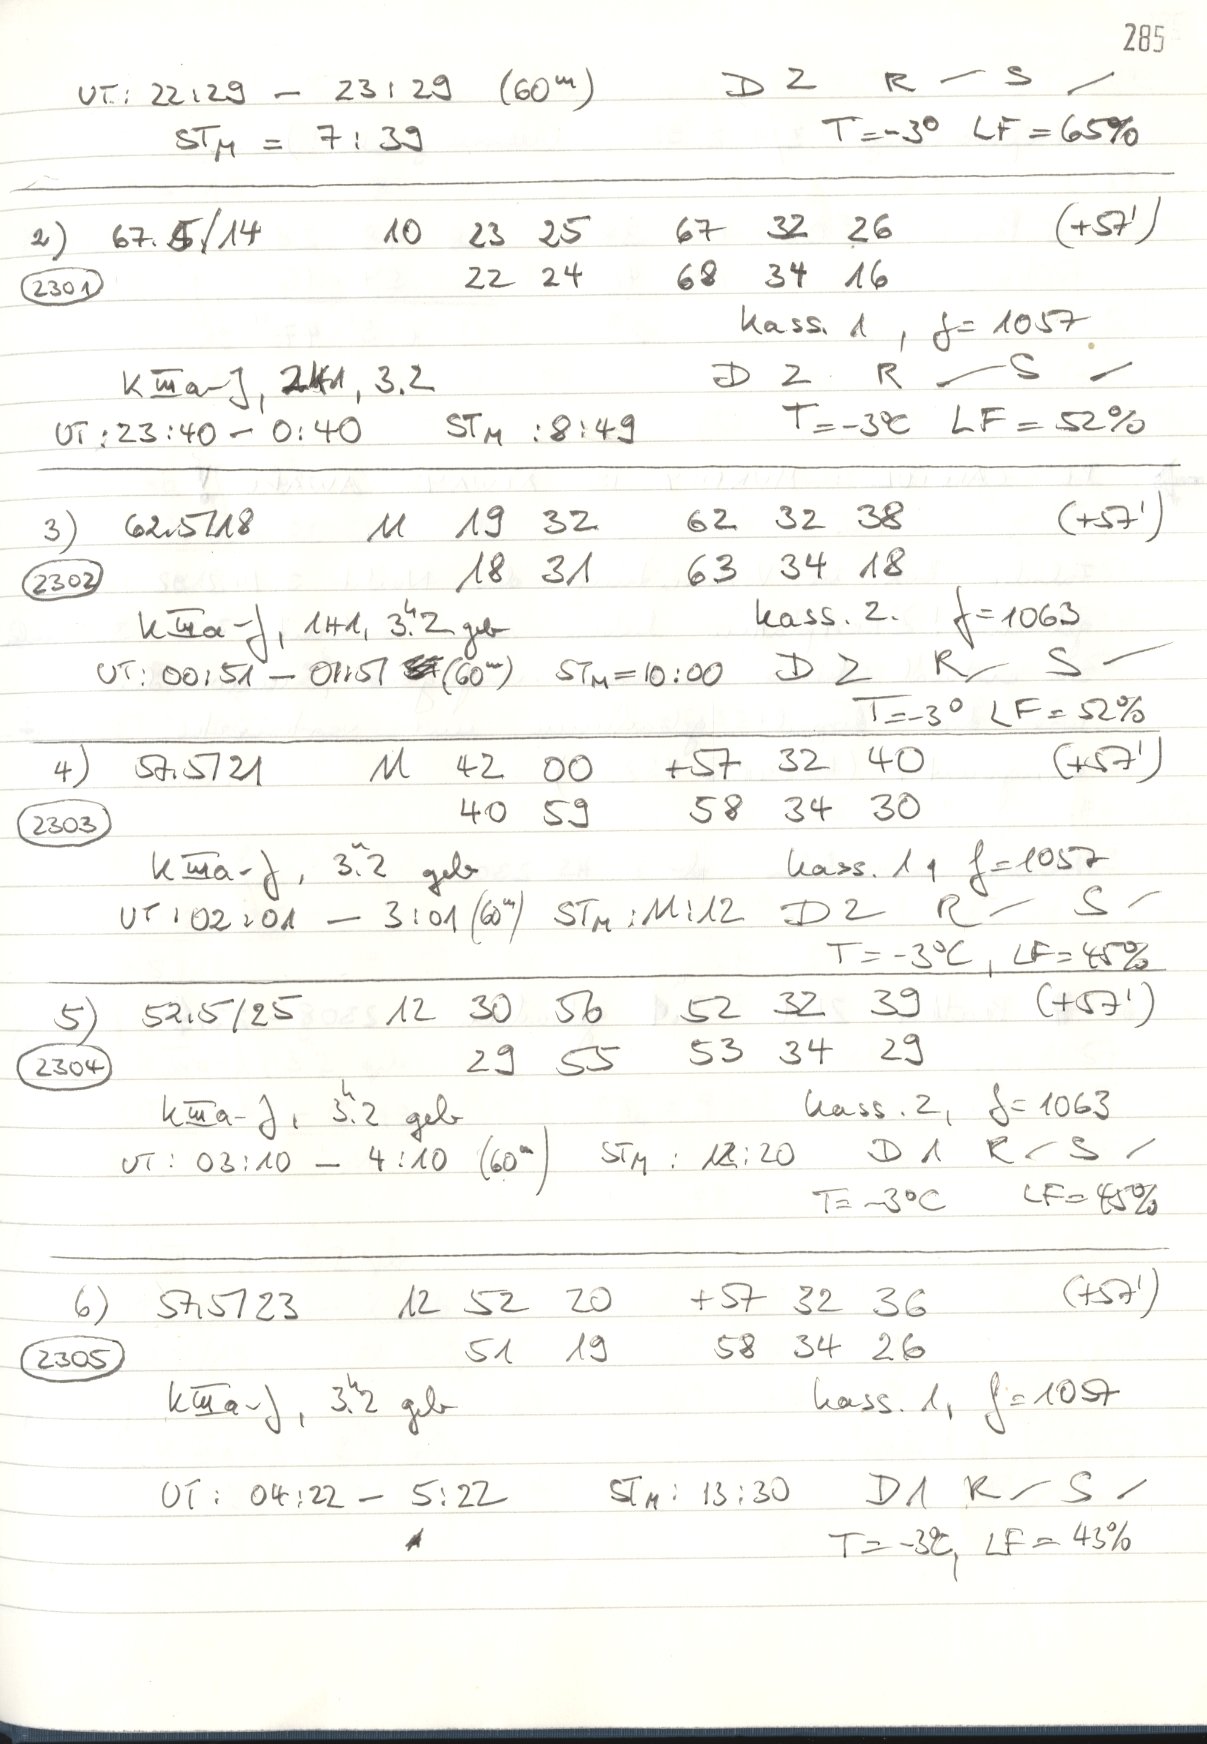 285
UT: 22:29 – 23:29 (60ᵐ) D 2 R – S –
STM = 7:39 T=-3° LF=65%
2) 67.5/14 10 23 25 67 32 26 (+57')
2301 22 24 68 34 16
Kass. 1, f=1057
KIIIa-J, 3.2 D 2 R – S –
UT: 23:40 – 0:40 STM: 8:49 T=-3°C LF=52%
3) 62.5/18 11 19 32 62 32 38 (+57')
2302 18 31 63 34 18
KIIIa-J, 1H1, 3.ʰ2 geb Kass. 2. f=1063
UT: 00:51 – 01:51 (60ᵐ) STM=10:00 D 2 R – S –
T=-3° LF=52%
4) 57.5/21 11 42 00 +57 32 40 (+57')
2303 40 59 58 34 30
KIIIa-J, 3.ʰ2 geb Kass. 1, f=1057
UT: 02:01 – 3:01 (60ᵐ) STM: 11:12 D 2 R – S –
T=-3°C, LF=45%
5) 52.5/25 12 30 56 52 32 39 (+57')
2304 29 55 53 34 29
KIIIa-J, 3.ʰ2 geb Kass. 2, f=1063
UT: 03:10 – 4:10 (60ᵐ) STM: 12:20 D 1 R – S –
T=-3°C LF=45%
6) 57.5/23 12 52 20 +57 32 36 (+57')
2305 51 19 58 34 26
KIIIa-J, 3.ʰ2 geb Kass. 1, f=1057
UT: 04:22 – 5:22 STM: 13:30 D1 R – S –
T=-3°C, LF=43%